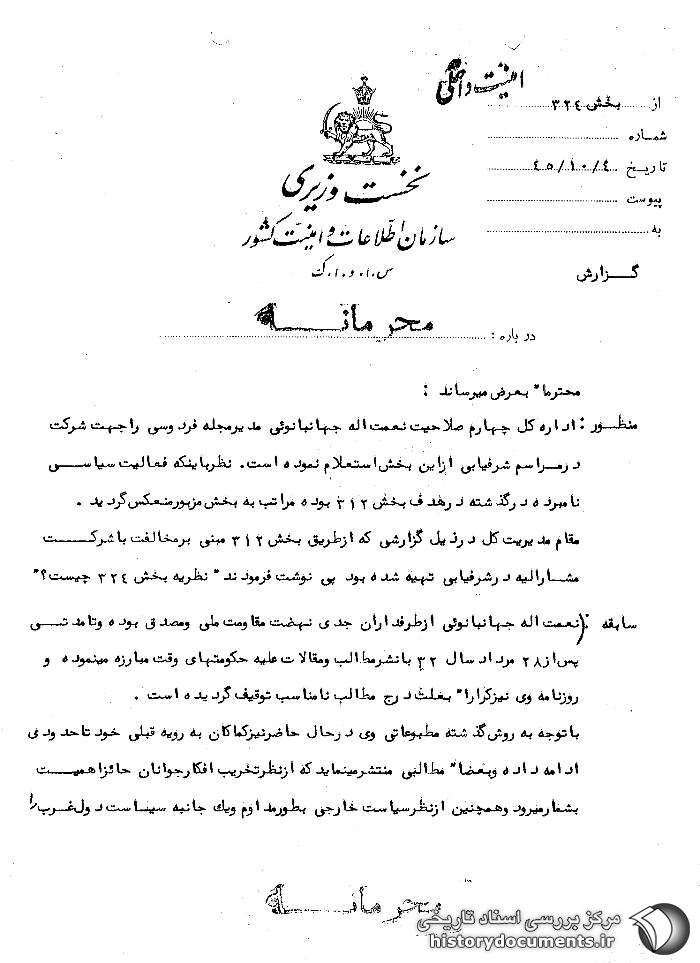 امنیت داخلی
از بخش ۳۲۴
شماره
تاریخ ۴۵/۱۰/۴
پیوست
به
نخست وزیری
سازمان اطلاعات و امنیت کشور
س.ا.و.ا.ک
گزارش
محرمانه
درباره :
محترما" بعرض میرساند :
منظور : اداره کل چهارم صلاحیت نعمت اله جهانبانوئی مدیرمجله فردوسی راجهت شرکت
درمراسم شرفیابی ازاین بخش استعلام نموده است. نظرباینکه فعالیت سیاسی
نامبرده درگذشته درهدف بخش ۳۱۲ بوده مراتب به بخش مزبورمنعکس گردید .
مقام مدیریت کل درذیل گزارشی که ازطریق بخش ۳۱۲ مبنی برمخالفت باشرکت
مشارالیه درشرفیابی تهیه شده بود پی نوشت فرمودند " نظریه بخش ۳۲۴ چیست؟"
سابقه : نعمت اله جهانبانوئی ازطرفداران جدی نهضت مقاومت ملی ومصدق بوده وتامدتی
پس از۲۸ مرداد سال ۳۲ بانشرمطالب ومقالات علیه حکومتهای وقت مبارزه مینموده و
روزنامه وی نیزکرارا" بعلت درج مطالب نامناسب توقیف گردیده است .
باتوجه به روش گذشته مطبوعاتی وی درحال حاضرنیزکماکان به رویه قبلی خود تاحدودی
ادامه داده وبعضا" مطالبی منتشرمینماید که ازنظرتخریب افکارجوانان حائزاهمیت
بشمارمیرود وهمچنین ازنظرسیاست خارجی بطورمداوم ویک جانبه سیاست دول غرب را
محرمانه
مرکز بررسی اسناد تاریخی
historydocuments.ir